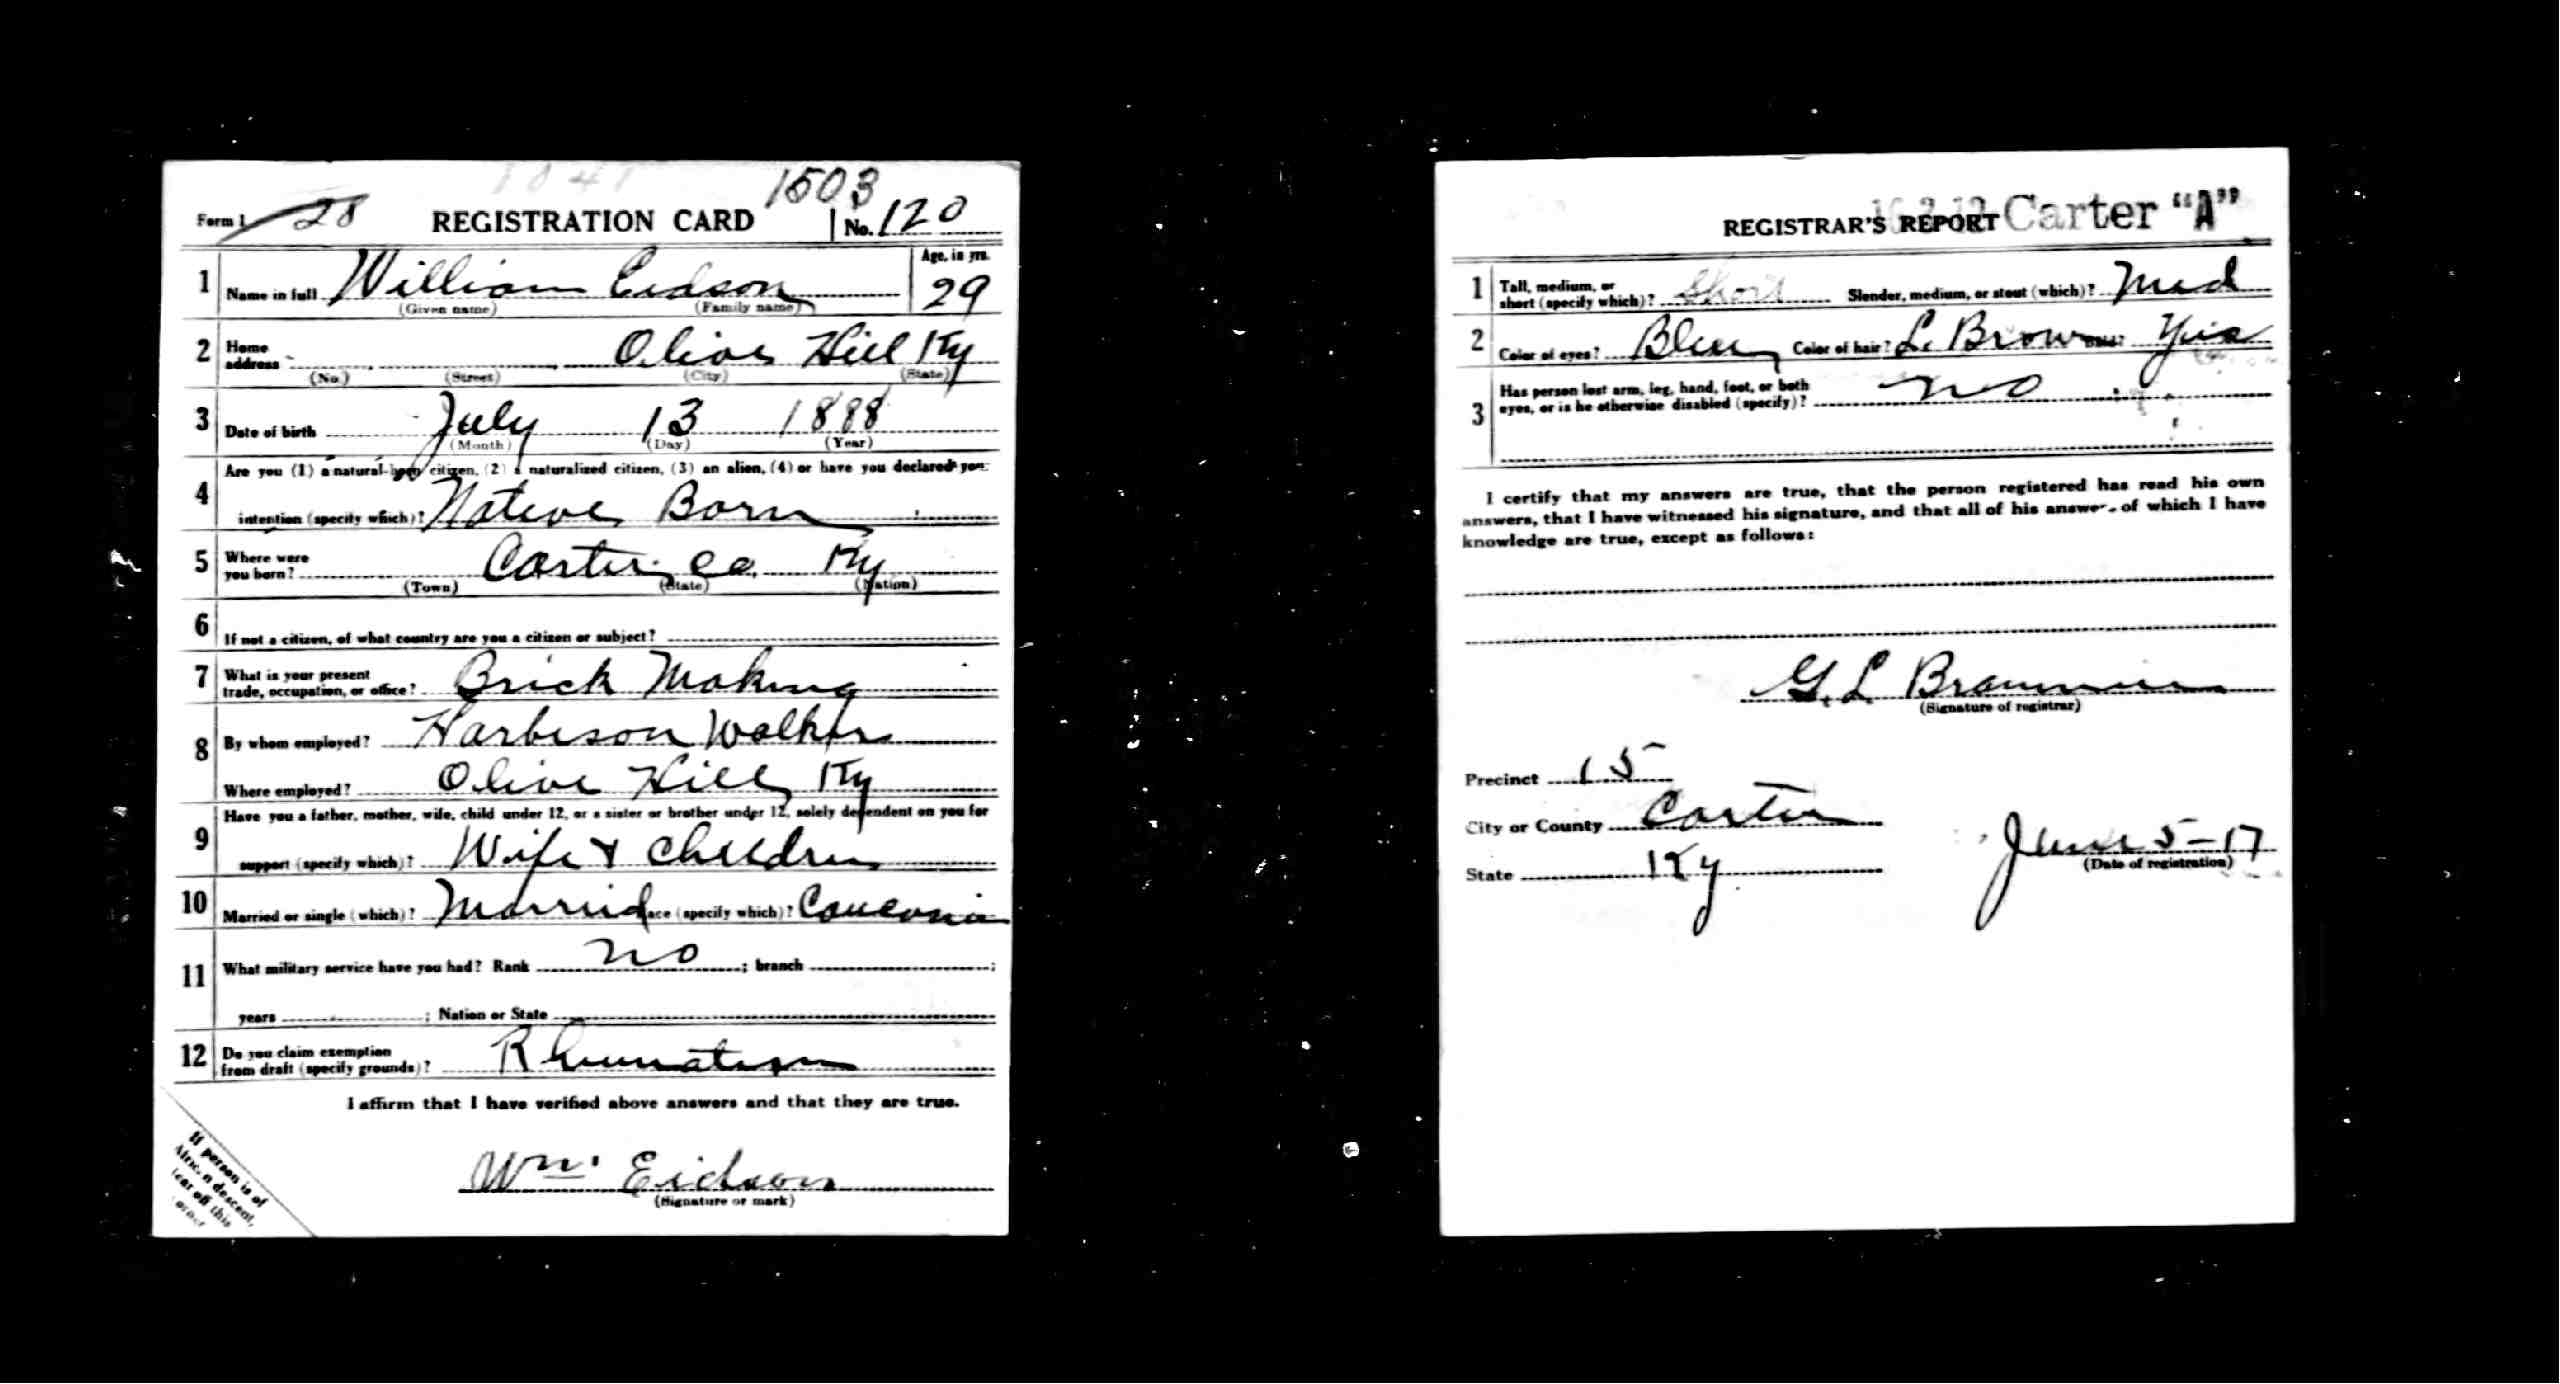 1503
Form 1 28 REGISTRATION CARD No. 120
1 Name in full William Eidson Age, in yrs. 29
(Given name) (Family name)
2 Home address Olive Hill Ky
(No.) (Street) (City) (State)
3 Date of birth July 13 1888
(Month) (Day) (Year)
4 Are you (1) a natural-born citizen, (2) a naturalized citizen, (3) an alien, (4) or have you declared your
intention (specify which)? Native Born
5 Where were you born? Carter Co. Ky
(Town) (State) (Nation)
6 If not a citizen, of what country are you a citizen or subject?
7 What is your present trade, occupation, or office? Brick Making
8 By whom employed? Harbison Walker
Where employed? Olive Hill, Ky
9 Have you a father, mother, wife, child under 12, or a sister or brother under 12, solely dependent on you for
support (specify which)? Wife & Children
10 Married or single (which)? Married Race (specify which)? Caucasia
11 What military service have you had? Rank no ; branch ;
years ; Nation or State
12 Do you claim exemption from draft (specify grounds)? Rhumatism
I affirm that I have verified above answers and that they are true.
Wm. Eidson
(Signature or mark)
If person is of
African descent,
tear off this
corner
REGISTRAR'S REPORT Carter "A"
1 Tall, medium, or short (specify which)? Short Slender, medium, or stout (which)? Med
2 Color of eyes? Blue Color of hair? L. Brown Bald? Yes
3 Has person lost arm, leg, hand, foot, or both eyes, or is he otherwise disabled (specify)? no
I certify that my answers are true, that the person registered has read his own
answers, that I have witnessed his signature, and that all of his answers of which I have
knowledge are true, except as follows:
G. L.
(Signature of registrar)
Precinct 15
City or County Carter
State Ky
June 5-17
(Date of registration)